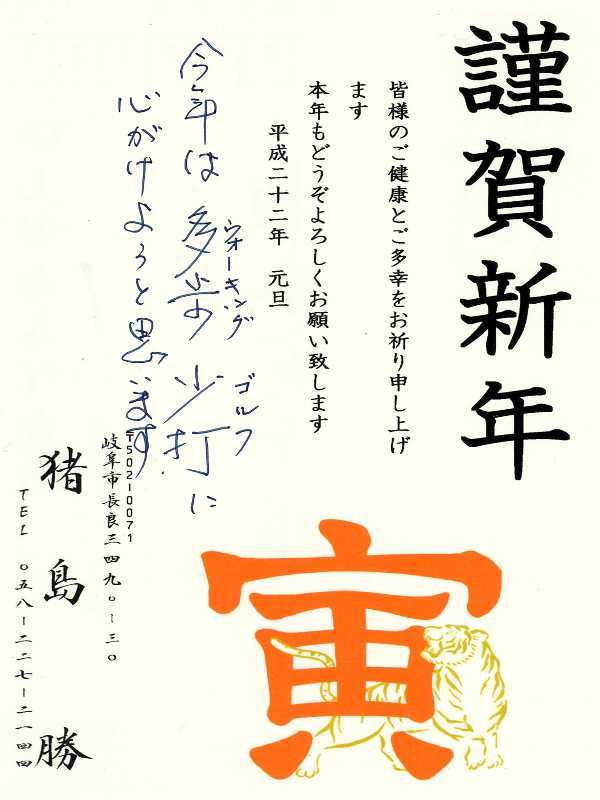 謹賀新年
皆様のご健康とご多幸をお祈り申し上げ
ます
本年もどうぞよろしくお願い致します
平成二十二年 元旦
今年は多歩少打に
ウォーキング ゴルフ
心がけようと思います.
〒502-0071
岐阜市長良三四九〇ー三〇
猪島 勝
TEL 〇五八ー二二七ー二一四四
寅